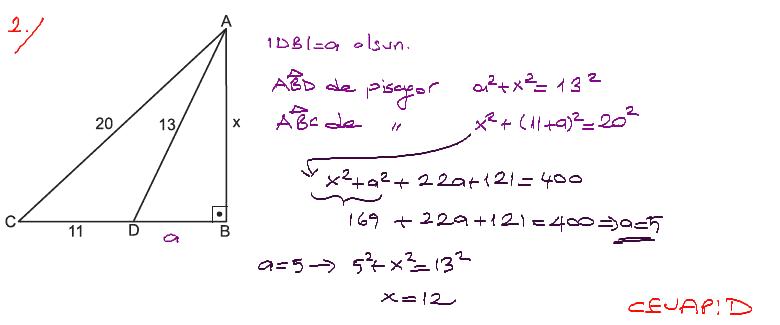 2./
A
20
13
x
C
11
D
a
B
|DB|=a olsun.
ABD de pisagor a²+x²=13²
ABC de " x²+(11+a)²=20²
x²+a²+22a+121=400
169+22a+121=400⇒a=5
a=5→ 5²+x²=13²
x=12
CEVAP:D